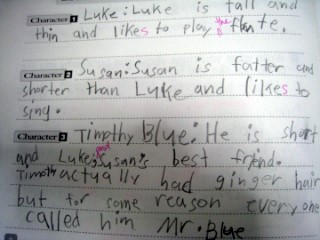 Character 1 Luke: Luke is tall and
thin and likes to play the flute.
Character 2 Susan: Susan is fatter and
shorter than Luke and likes to
sing.
Character 3 Timothy Blue: He is short
and Luke and Susan's best friend.
Timothy actually had ginger hair
but for some reason everyone
called him Mr. Blue